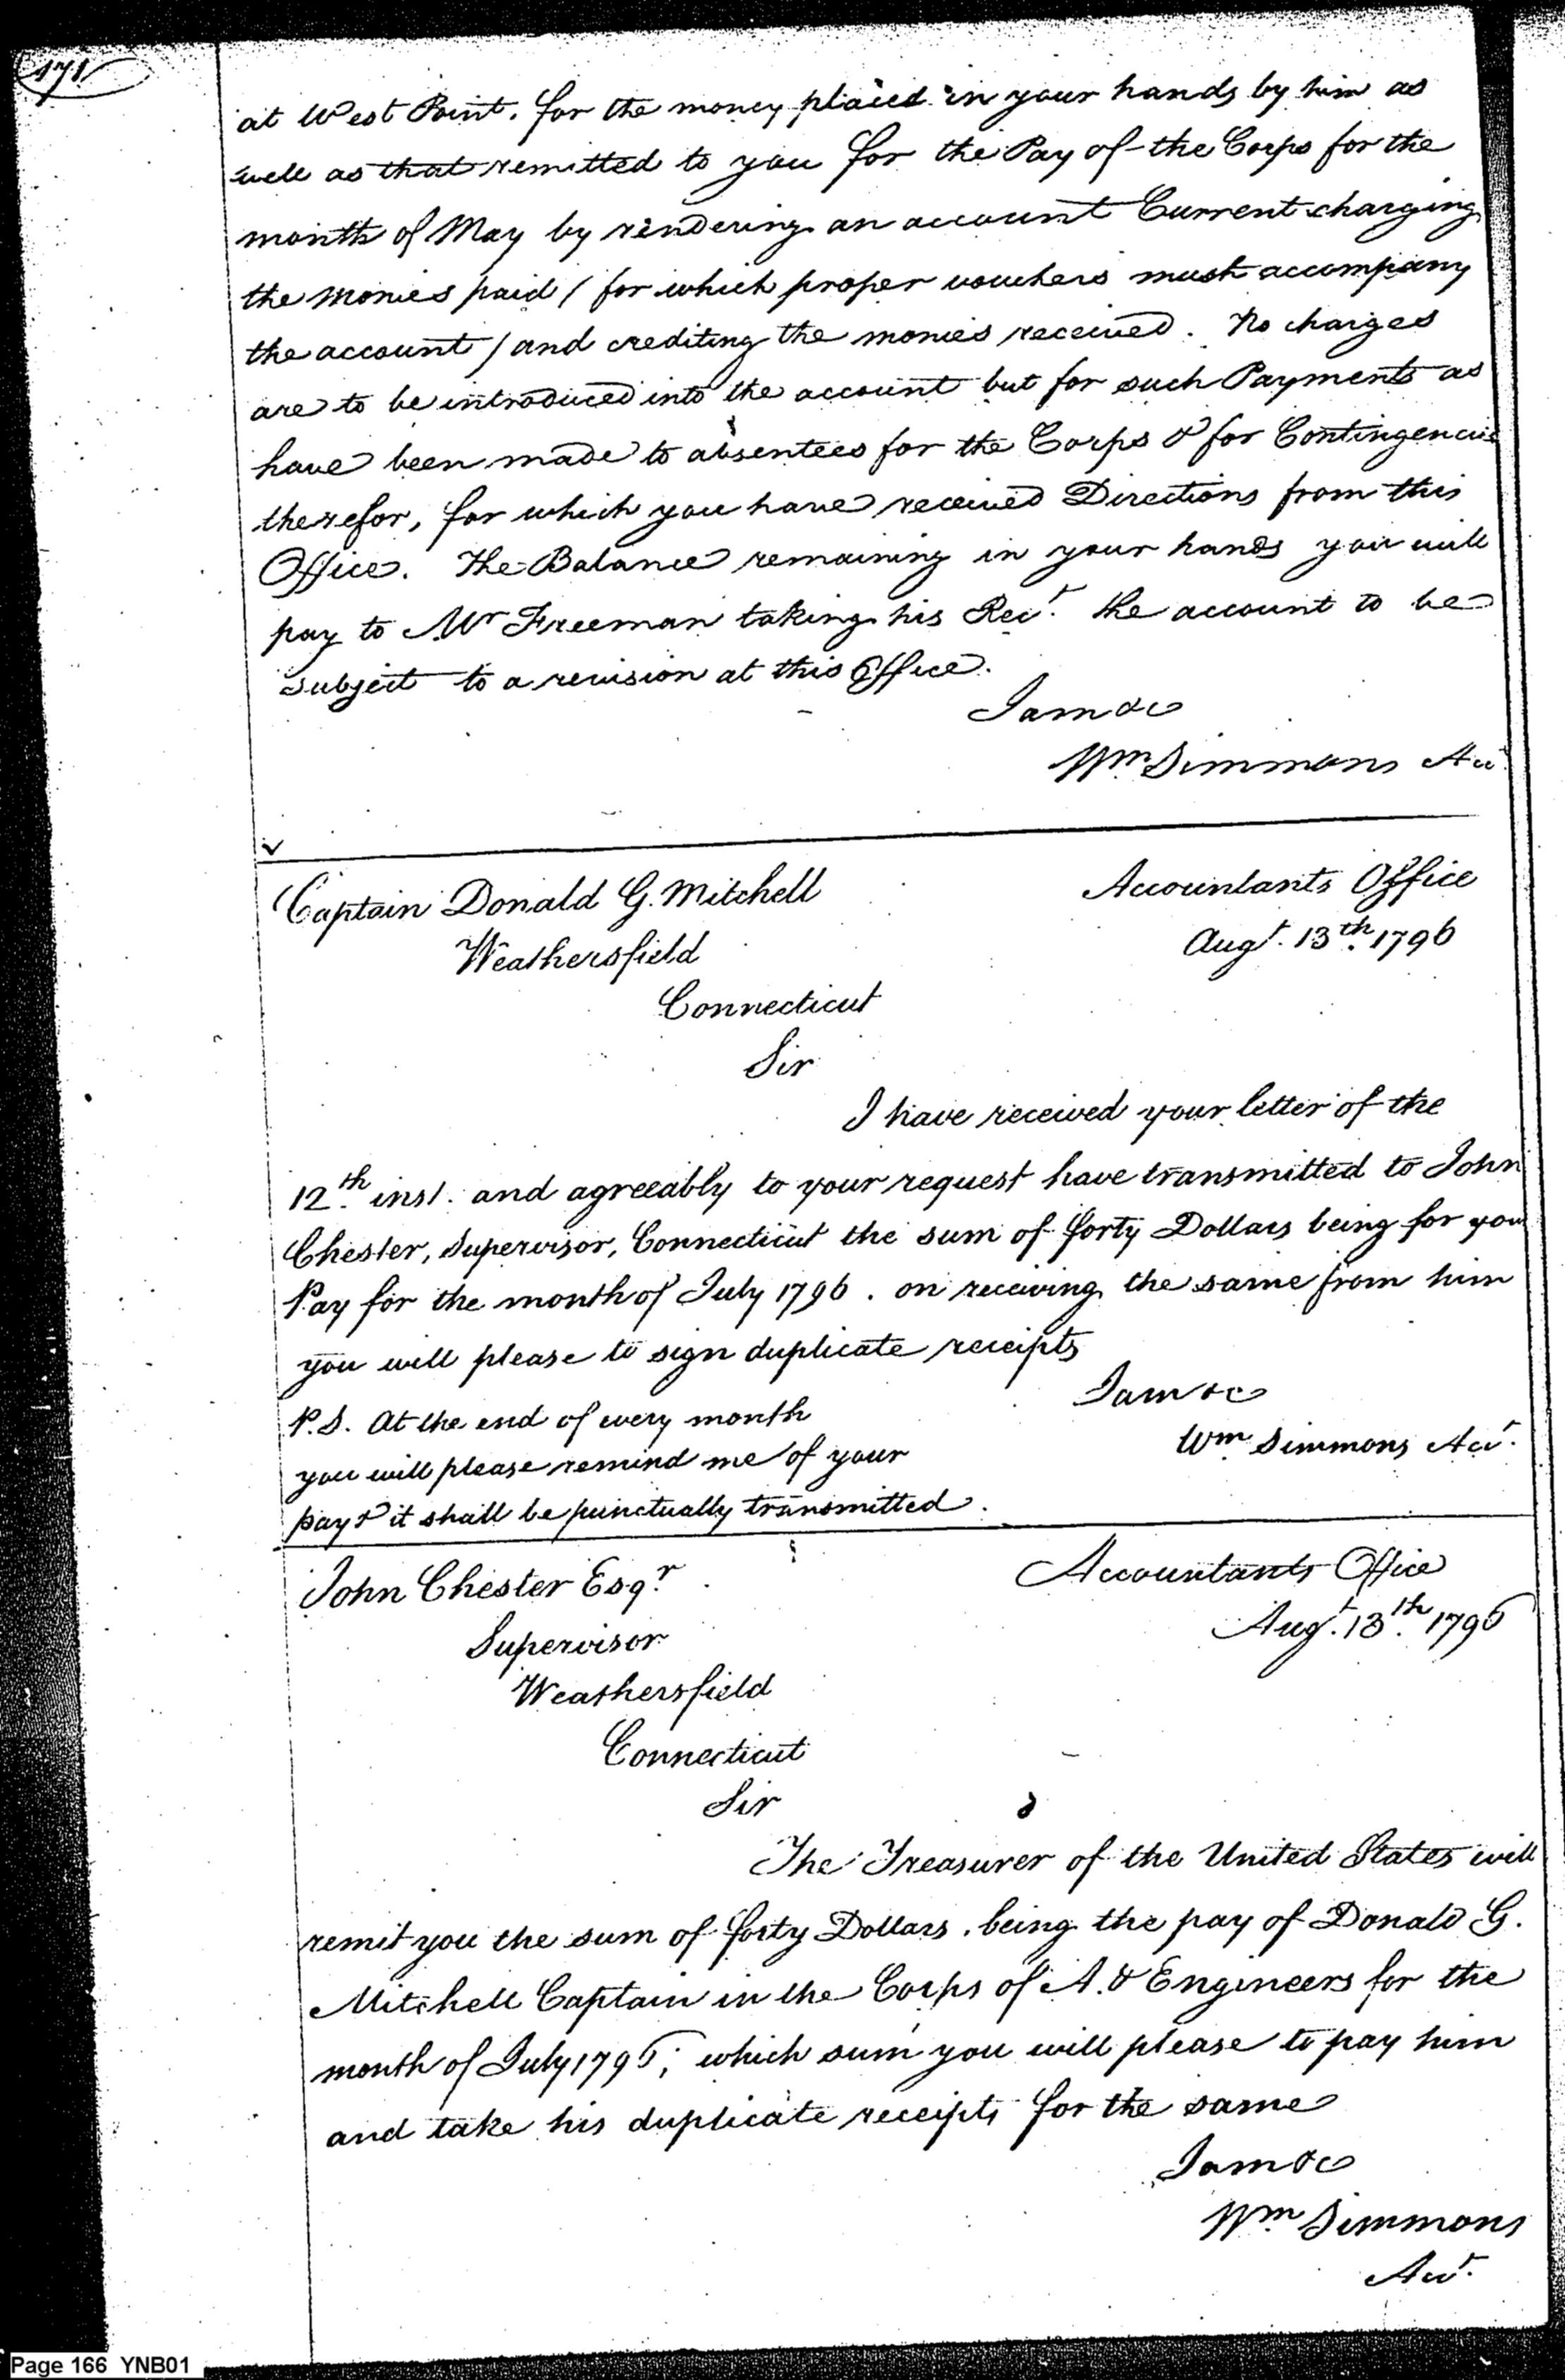 171
at West Point, for the money placed in your hands by him as
well as that remitted to you for the Pay of the Corps for the
month of May by rendering an account Current charging
the monies paid / for which proper vouchers must accompany
the account / and crediting the monies received. No charges
are to be introduced into the account but for such Payments as
have been made to absentees for the Corps & for Contingencies
therefor, for which you have received Directions from this
Office. The Balance remaining in your hands you will
pay to Mr Freeman taking his Rect. the account to be
subject to a revision at this Office.
I am &c
Wm Simmons Acct
Captain Donald G. Mitchell
Accountants Office
Weathersfield
Augt. 13th. 1796
Connecticut
Sir
I have received your letter of the
12th. inst. and agreeably to your request have transmitted to John
Chester, Supervisor, Connecticut the sum of forty Dollars being for your
Pay for the month of July 1796. on receiving the same from him
you will please to sign duplicate receipts
I am &c
P.S. At the end of every month
Wm Simmons Acct.
you will please remind me of your
pay & it shall be punctually transmitted.
John Chester Esqr.
Accountants Office
Supervisor
Augt. 13th. 1796
Weathersfield
Connecticut
Sir
The Treasurer of the United States will
remit you the sum of forty Dollars, being the pay of Donald G.
Mitchell Captain in the Corps of A. & Engineers for the
month of July 1796; which sum you will please to pay him
and take his duplicate receipts for the same
I am &c
Wm. Simmons
Acct.
Page 166 YNB01